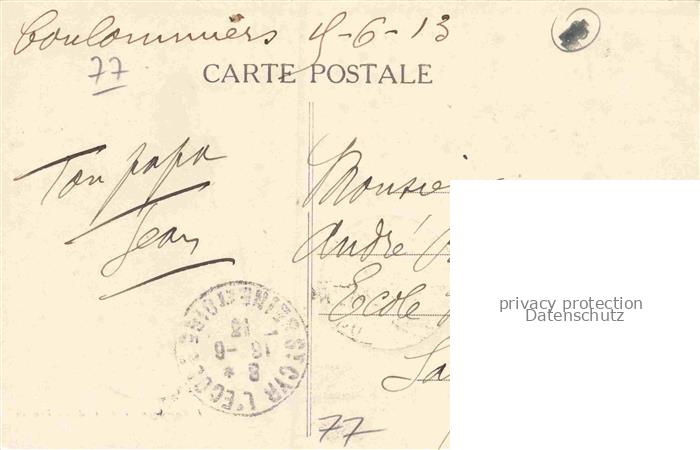 Coulommiers 9-6-13
77
CARTE POSTALE
Ton papa
Jean
Monsieur
André
Ecole
ST CYR L'ECOLE SEINE ET OISE
77
privacy protection
Datenschutz